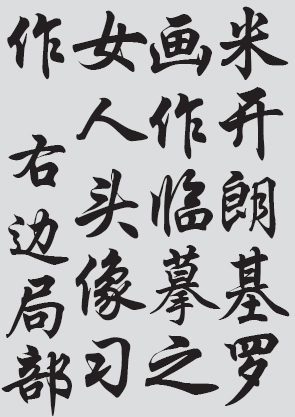 米开朗基罗
画作临摹之
女人头像习
作
右边局部